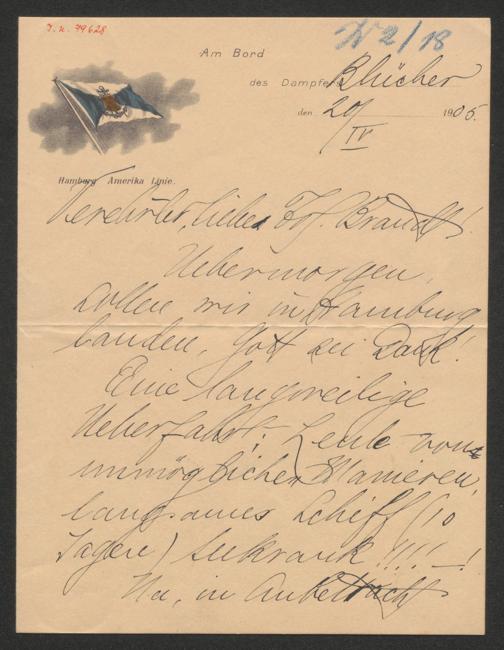 I. N. 79628
N 2/18
Am Bord
des Dampfers Blücher
den 20/IV 1905.
Hamburg Amerika Linie.
Verehrter, lieber Prof. Brandt!
Uebermorgen,
sollen wir in Hamburg
landen, Gott sei Dank!
Eine langweilige
Ueberfahrt; Leute von
unmöglichen Manieren,
langsames Schiff (10
Tagen) seekrank!!!! – !
Na, in Anbetracht